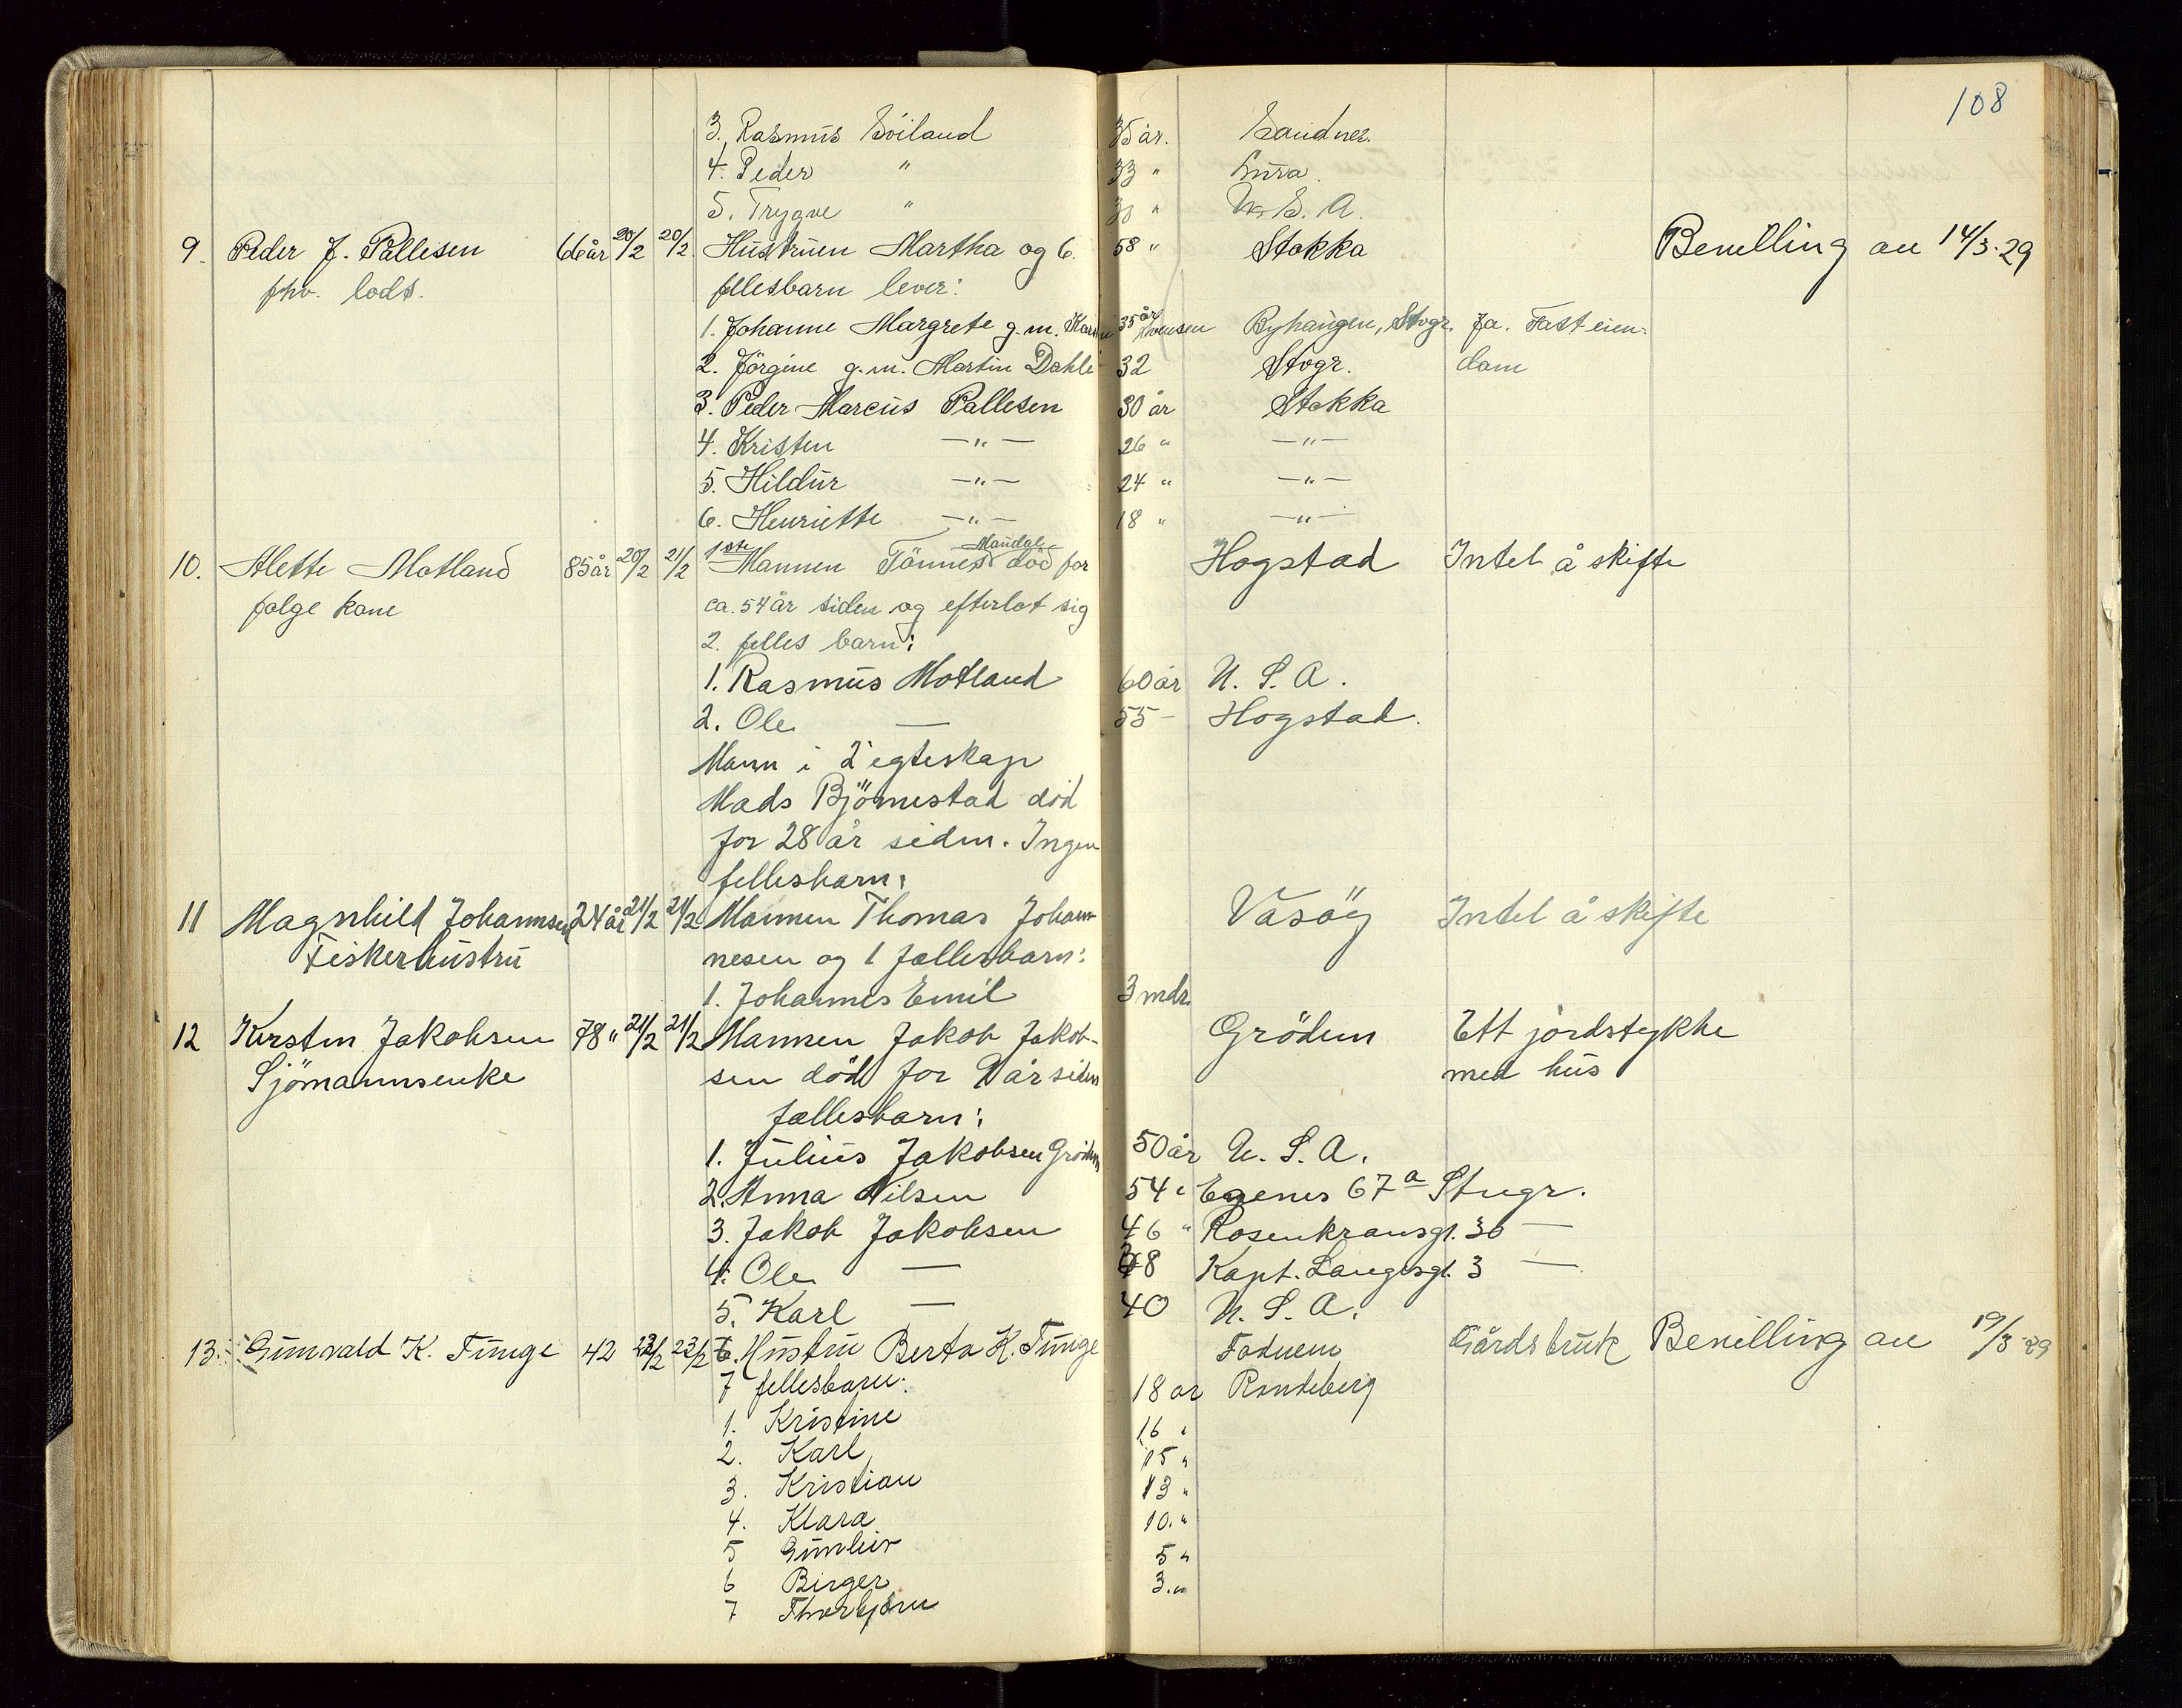 108
3. Rasmus Söiland 35 år. Sandnes.
4. Peder " 33 " Lura.
5. Trygve " 30 " U. S. A.
9. Peder J. Pallesen 66 år 20/2 20/2. Hustruen Martha og 6. 58 " Stokka Bevilling av 14/3-29
fhv. lods. fellesbarn lever:
1. Johanne Margrete g.m. 35 år Byhaugen, Stvgr. Ja. Fast eien-
2. Jörgine g.m. Martin Dahle 32 Stvgr. dom
3. Peder Marcus Pallesen 30 år Stokka
4. Kristen —"— 26 " —"—
5. Hildur —"— 24 " —"—
6. Henriette —"— 18 " —"—
10. Alette Motland 85 år 20/2 21/2 1ste Mannen Tönnes Mandal död for Hogstad Intet å skifte
folge kone ca. 54 år siden og efterlot sig
2. felles barn:
1. Rasmus Motland 60 år U. S. A.
2. Ole — 55 – Hogstad.
Mann i 2 egteskap
Mads Björnestad död
for 28 år siden. Ingen
fellesbarn.
11 Magnhild Johannsen 24 år 21/2 21/2 Mannen Thomas Johan- Vasöy Intet å skifte
Fiskerhustru nesen og 1 fællesbarn:
1. Johannes Emil 3 mdr.
12 Kirsten Jakobsen 78 " 21/2 21/2 Mannen Jakob Jakob- Grödem Ett jordstykke
Sjömannsenke sen död for 9 år siden med hus
fællesbarn:
1. Julius Jakobsen Grödem 50 år U. S. A.
2. Anna Nilsen 54 " Egenes 67a Stvgr.
3. Jakob Jakobsen 46 " Rosenkransgt. 36 —
4. Ole — 38 Kapt. Langesgt. 3 —
5. Karl — 40 U. S. A.
13. Gunvald K. Tunge 42 22/2 23/2 Hustru Berta K. Tunge Gårdsbruk Bevilling av 19/3-29
7 fellesbarn: 18 år Randeberg
1. Kristine 16 "
2. Karl 15 "
3. Kristian 13 "
4. Klara 10. "
5 Gunleiv 5 "
6 Birger 3. "
7 Thorbjörn